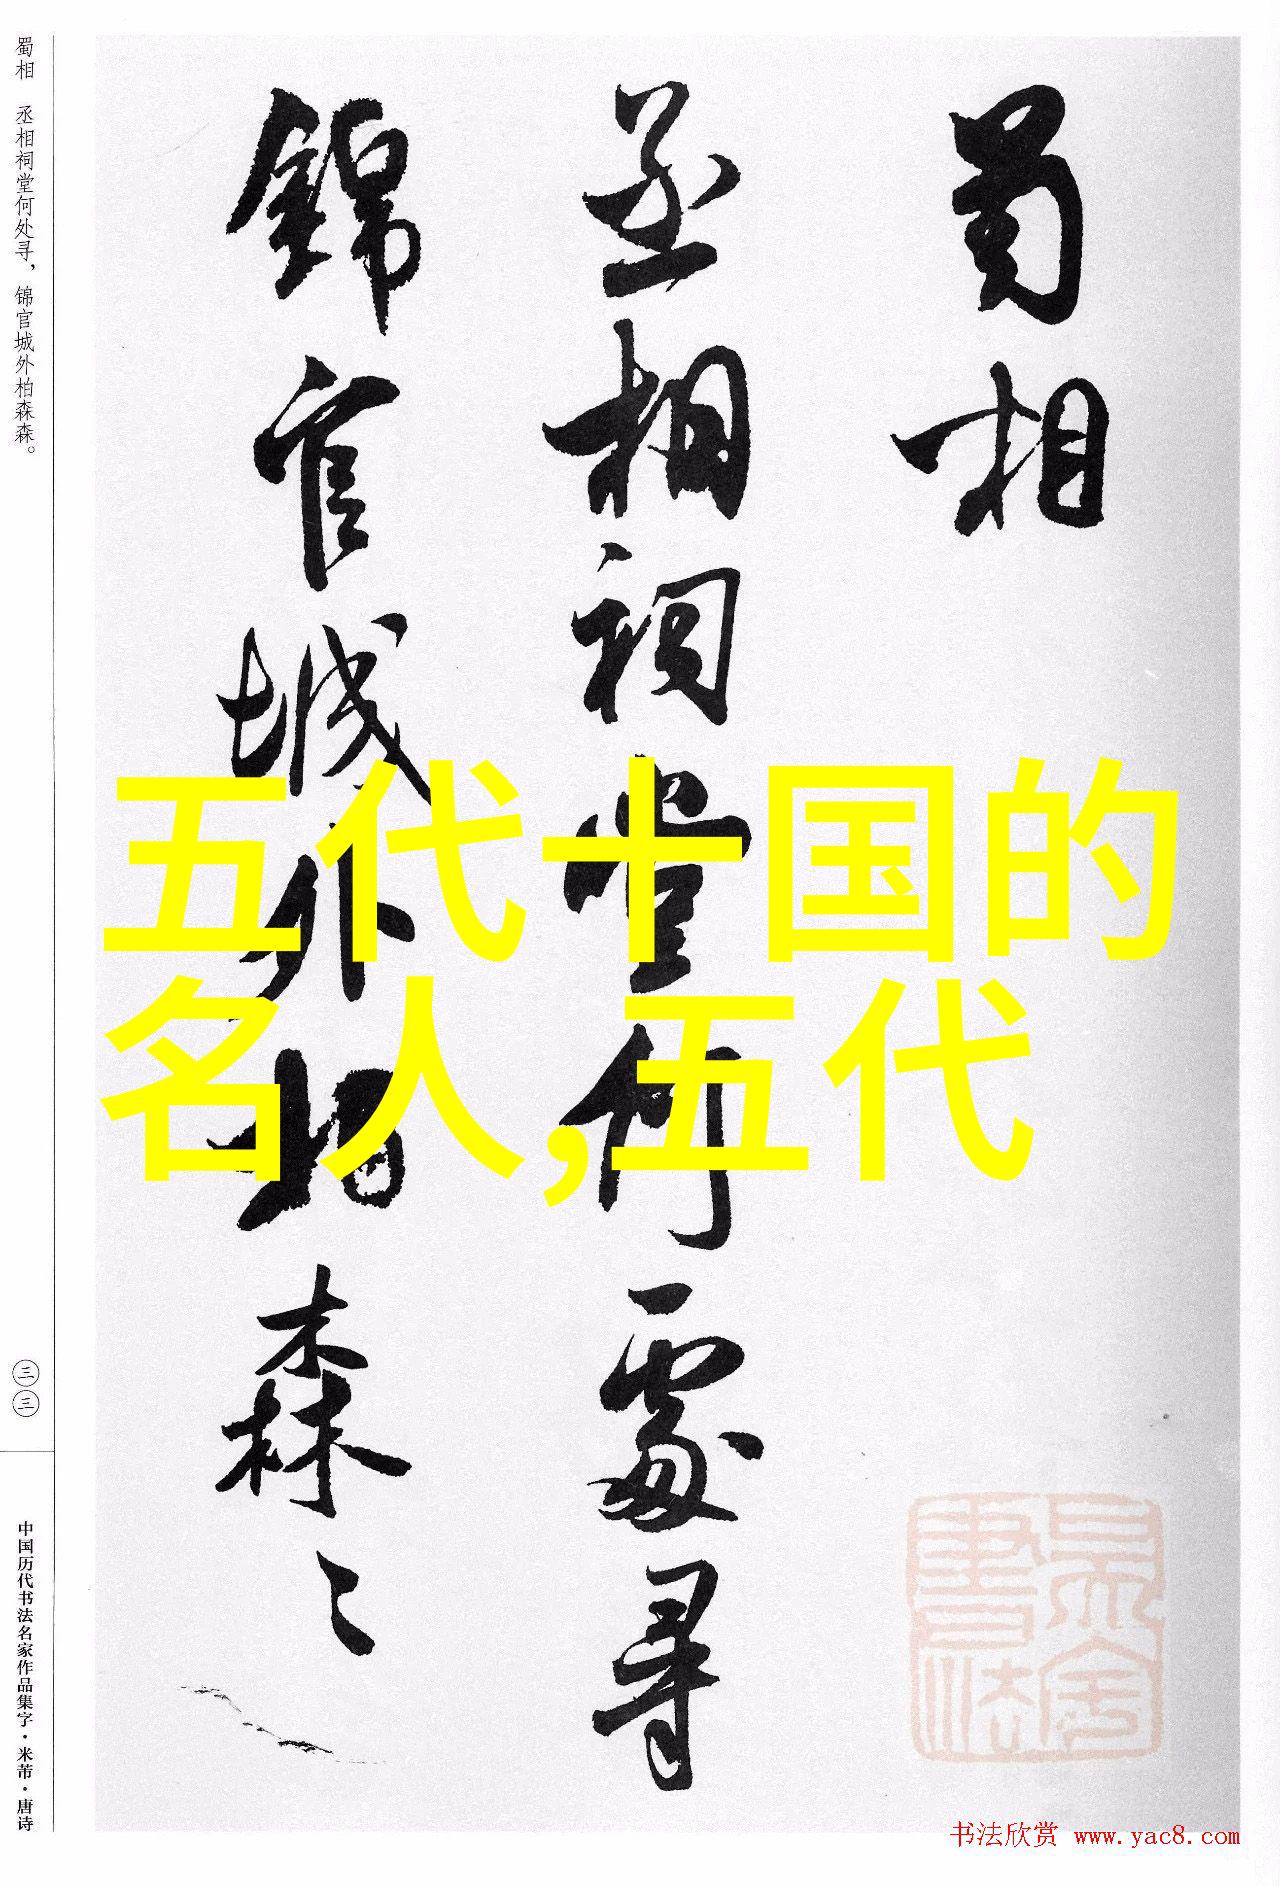 蜀相
丞相祠堂何處尋
錦官城外柏森〻
五代十国的
名人,五代
蜀相 丞相祠堂何处寻，锦官城外柏森森。
三三
中国历代书法名家作品集字·米芾·唐诗
书法欣赏 www.yac8.com